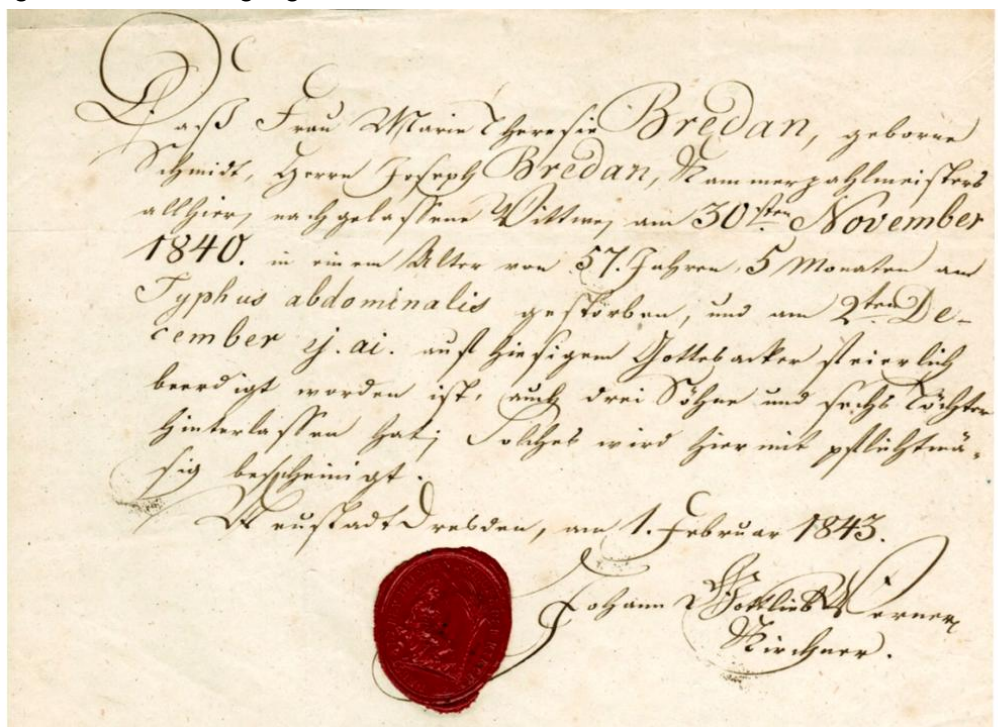 Daß Frau Marie Theresie Bredan, geborne
Schmidt, Herrn Joseph Bredan, Kammerzahlmeisters
allhier, nachgelassene Wittwe, am 30sten November
1840. in einem Alter von 57. Jahren, 5 Monaten am
Typhus abdominalis gestorben, und am 2ten De-
cember ej. ai. auf hiesigem Gottesacker feierlich
beerdigt worden ist, auch drei Söhne und sechs Töchter
hinterlassen hat; Solches wird hiermit pflichtmä-
sig bescheinigt.
Neustadt Dresden, am 1. Februar 1843.
Johann Gottlieb Werner,
Kirchner.